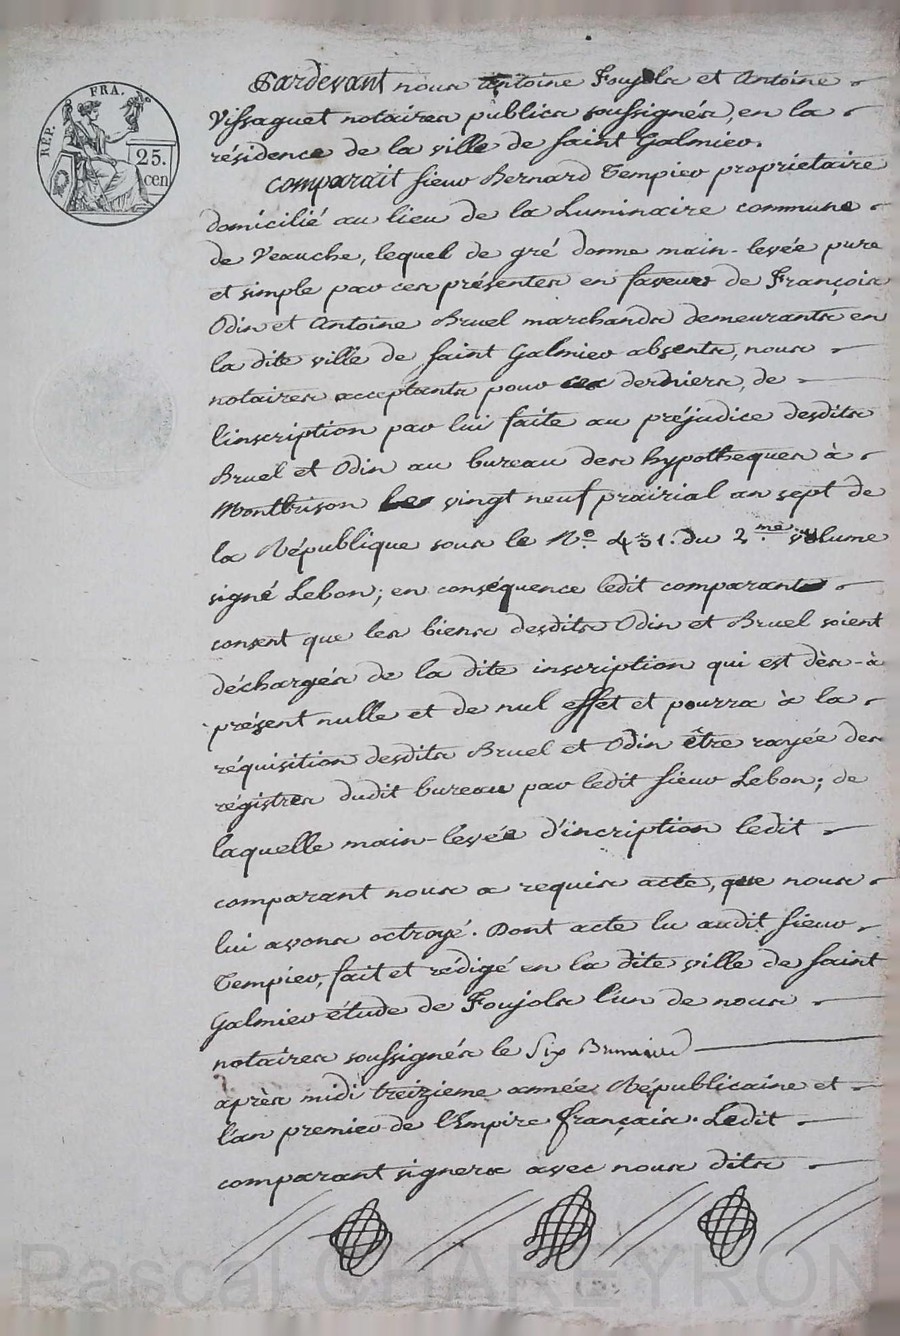 RÉP. FRA.
25.
cen
Pardevant nous Antoine Foujols et Antoine
Vissaguet notaires publics soussignés, en la
résidence de la ville de saint Galmier.
comparait sieur Bernard Tempier propriétaire
domicilié au lieu de la Luminaire commune
de Veauche, lequel de gré donne main-levée pure
et simple par ces présentes en faveur de François
Odin et Antoine Bruel marchands demeurants en
la dite ville de saint Galmier absents, nous
notaires acceptants pour ces derniers, de
l'inscription par lui faite au préjudice desdits
Bruel et Odin au bureau des hypotheques à
Montbrison le vingt neuf prairial an sept de
la République sous le N.o 431. du 2.me volume
signé Lebon; en conséquence ledit comparant
consent que les biens desdits Odin et Bruel soient
déchargés de la dite inscription qui est dès-à
présent nulle et de nul effet et pourra à la
réquisition desdits Bruel et Odin être rayée des
régistres dudit bureau par ledit sieur Lebon; de
laquelle main-levée d'incription ledit
comparant nous a requis acte, que nous
lui avons octroyé. Dont acte lu audit sieur
Tempier, fait et rédigé en la dite ville de saint
Galmier étude de Foujols l'un de nous
notaires soussignés le Six Brumaire
après midi treizieme année Républicaine et
l'an premier de l'Empire français. Ledit
comparant signera avec nous dits
Pascal CHAREYRON